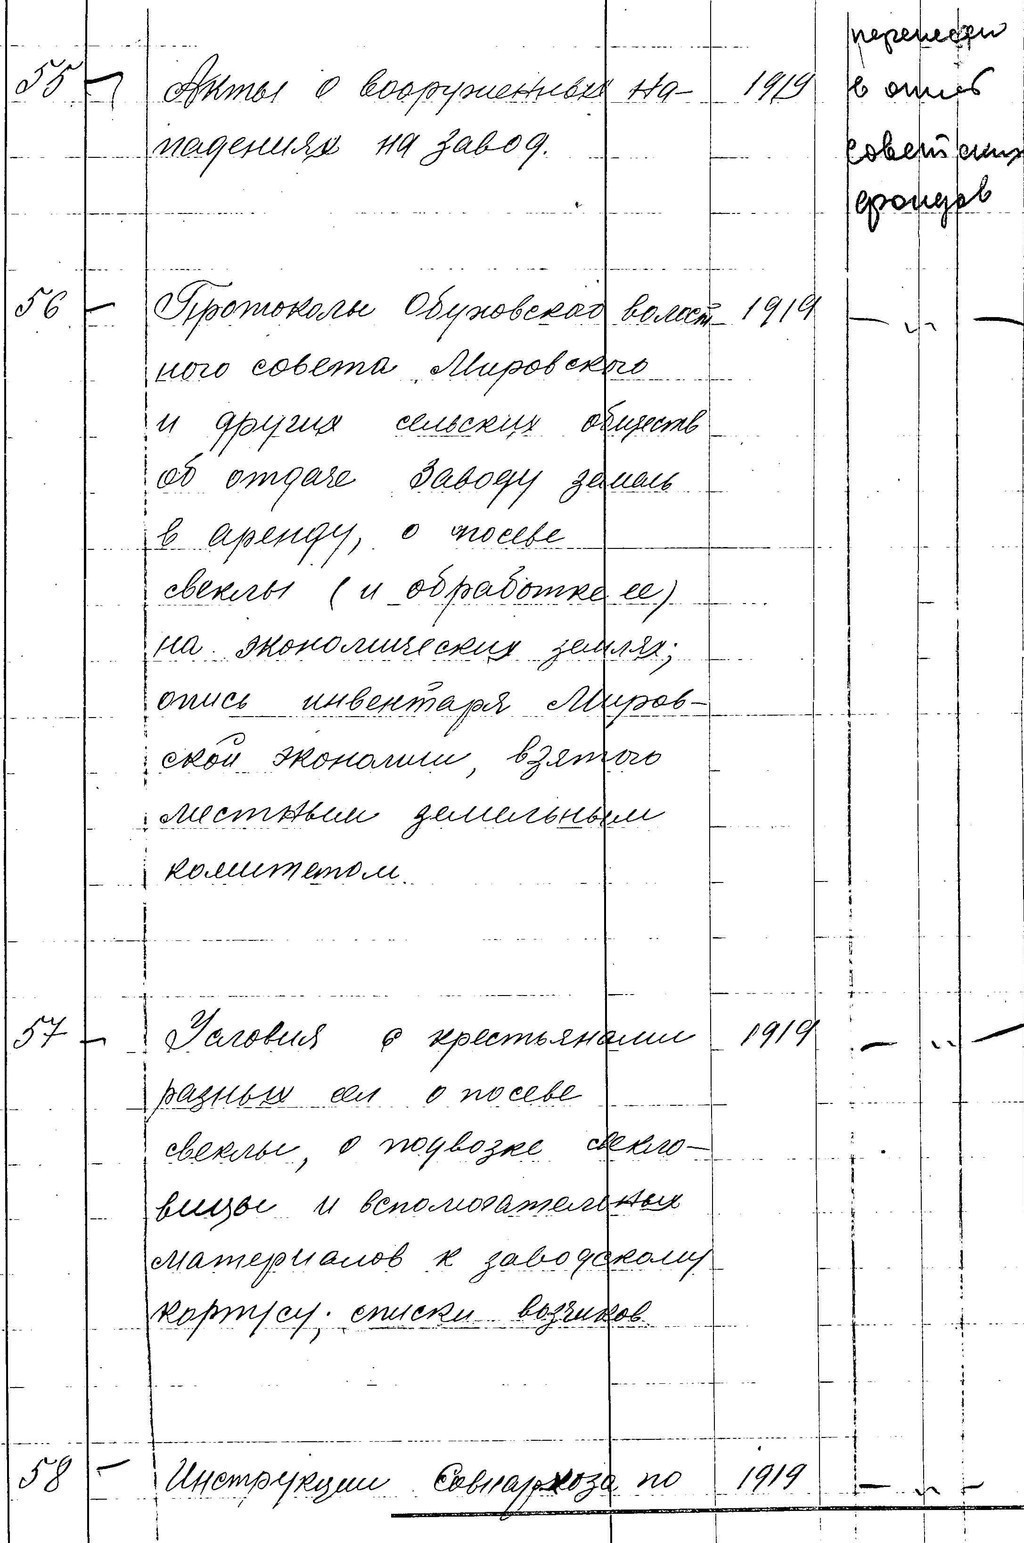 перенесен
55 Акты о вооруженных на- 1919 в отдел
падениях на завод. советских
фондов
56 — Протоколы Обуховского волост- 1919 — " —
ного совета Мировского
и других сельских обществ
об отдаче Заводу земель
в аренду, о посеве
свеклы (и обработке ее)
на экономических землях;
опись инвентаря Миров-
ской экономии, взятого
местным земельным
комитетом.
57 — Условия с крестьянами 1919 — " —
разных сел о посеве
свеклы, о подвозке свекло-
вицы и вспомогательных
материалов к заводскому
корпусу; списки возчиков
58 — Инструкции Совнархоза по 1919 — " —